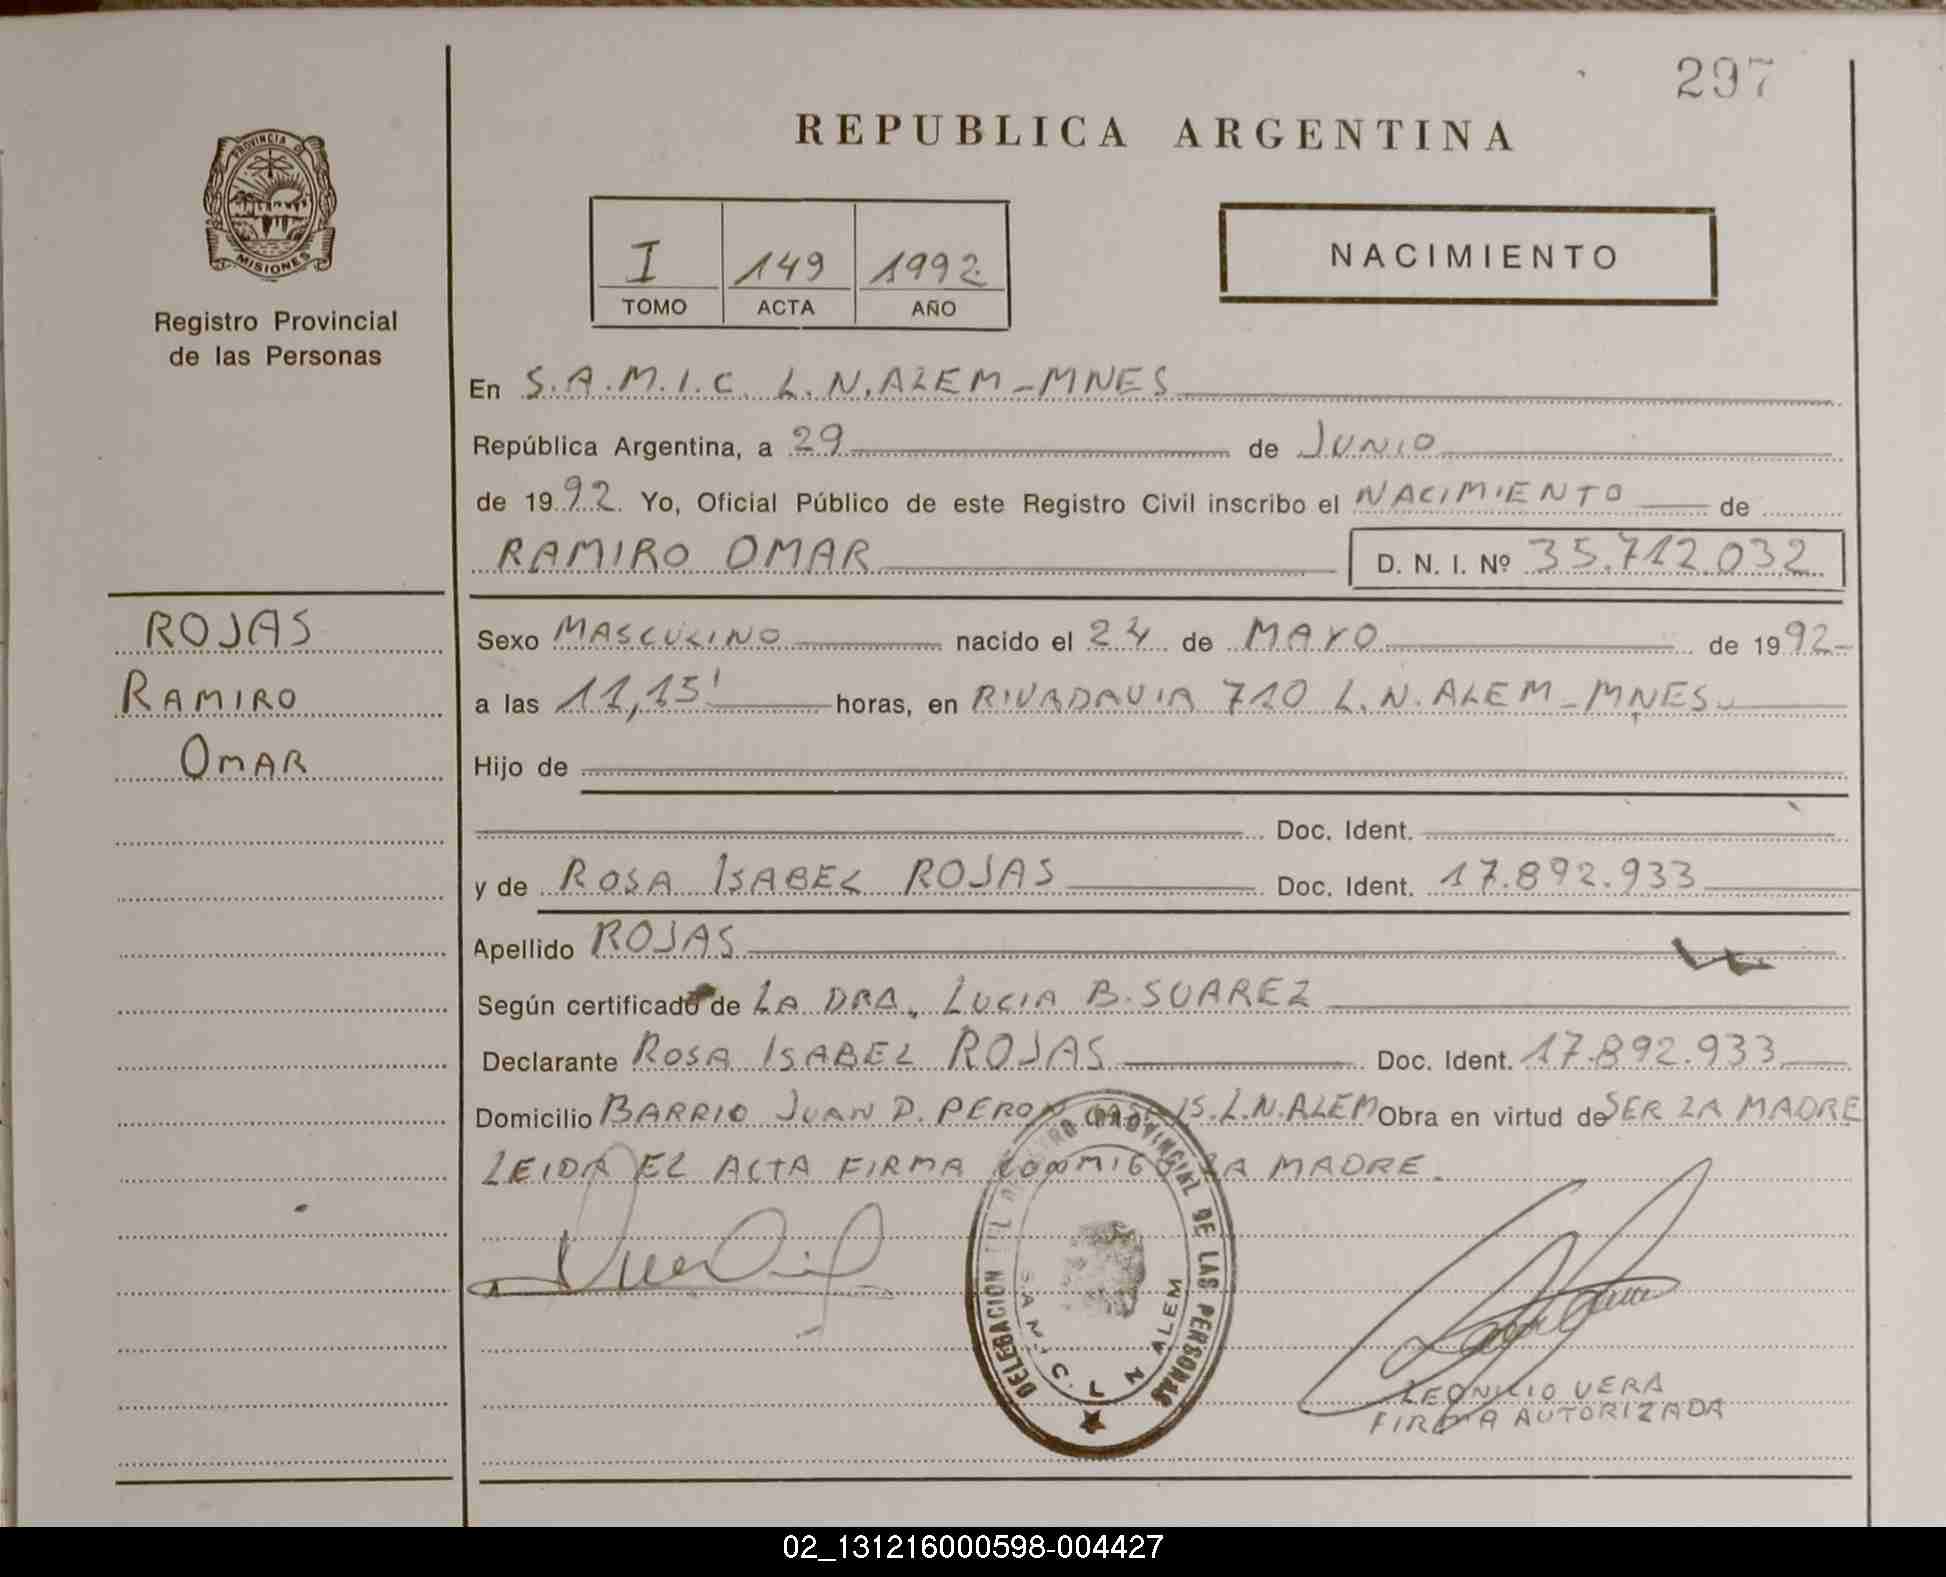 297
REPUBLICA ARGENTINA
PROVINCIA DE
MISIONES
Registro Provincial
de las Personas
I 149 1992
TOMO ACTA AÑO
NACIMIENTO
En S.A.M.I.C. L.N.ALEM-MNES
República Argentina, a 29 de JUNIO
de 1992. Yo, Oficial Público de este Registro Civil inscribo el NACIMIENTO de
RAMIRO OMAR D. N. I. Nº 35.712.032
ROJAS
RAMIRO
OMAR
Sexo MASCULINO nacido el 24 de MAYO de 1992-
a las 11,15' horas, en RIVADAVIA 710 L.N.ALEM-MNES
Hijo de
Doc. Ident.
y de ROSA ISABEL ROJAS Doc. Ident. 17.892.933
Apellido ROJAS
Según certificado de LA DRA. LUCIA B. SUAREZ
Declarante ROSA ISABEL ROJAS Doc. Ident. 17.892.933
Domicilio BARRIO JUAN D. PERON CASA 15.L.N.ALEM Obra en virtud de SER LA MADRE
LEIDA EL ACTA FIRMA CONMIGO LA MADRE.
DELEGACION DEL REGISTRO PROVINCIAL DE LAS PERSONAS
S.A.M.I.C. L N ALEM
LEONILIO VERA
FIRMA AUTORIZADA
02_131216000598-004427